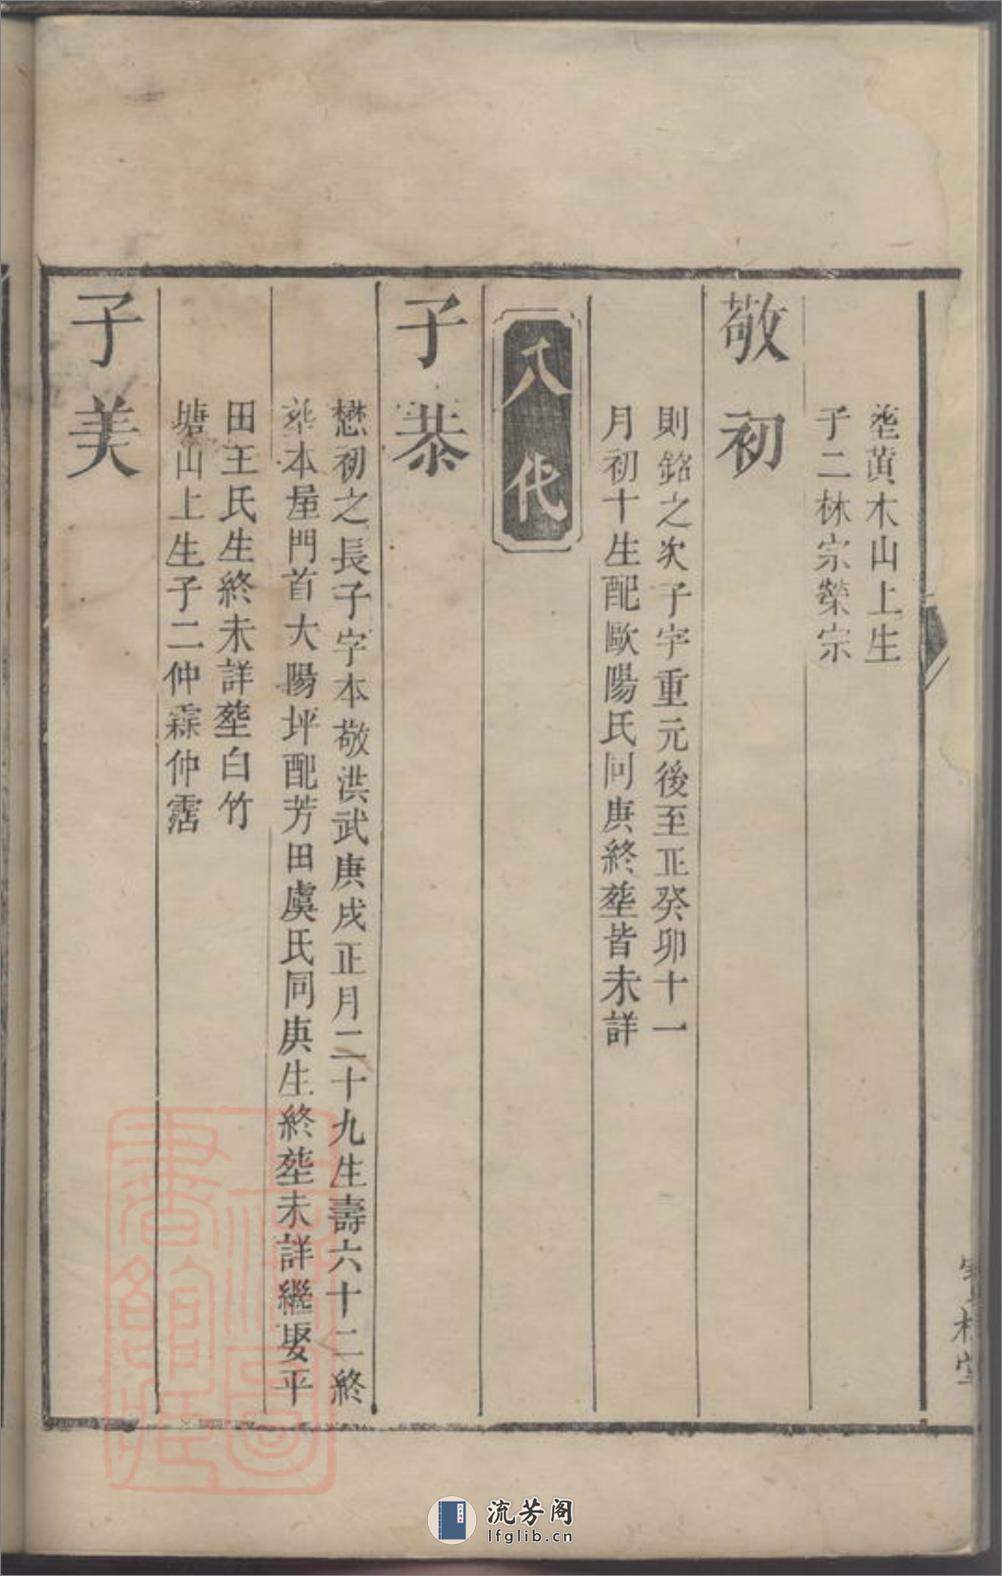 塟黄木山上生
子二林宗榮宗
敬初
則銘之次子字重元後至正癸卯十一
月初十生配歐陽氏同庚終塟皆未詳
八代
子恭
懋初之長子字本敬洪武庚戌正月二十九生壽六十二終
塟本屋門首大陽坪配芳田虞氏同庚生終塟未詳繼娶平
田王氏生終未詳塟白竹
塘山上生子二仲霖仲霑
子美
上海圖
書館藏
流芳阁
lfglib.cn